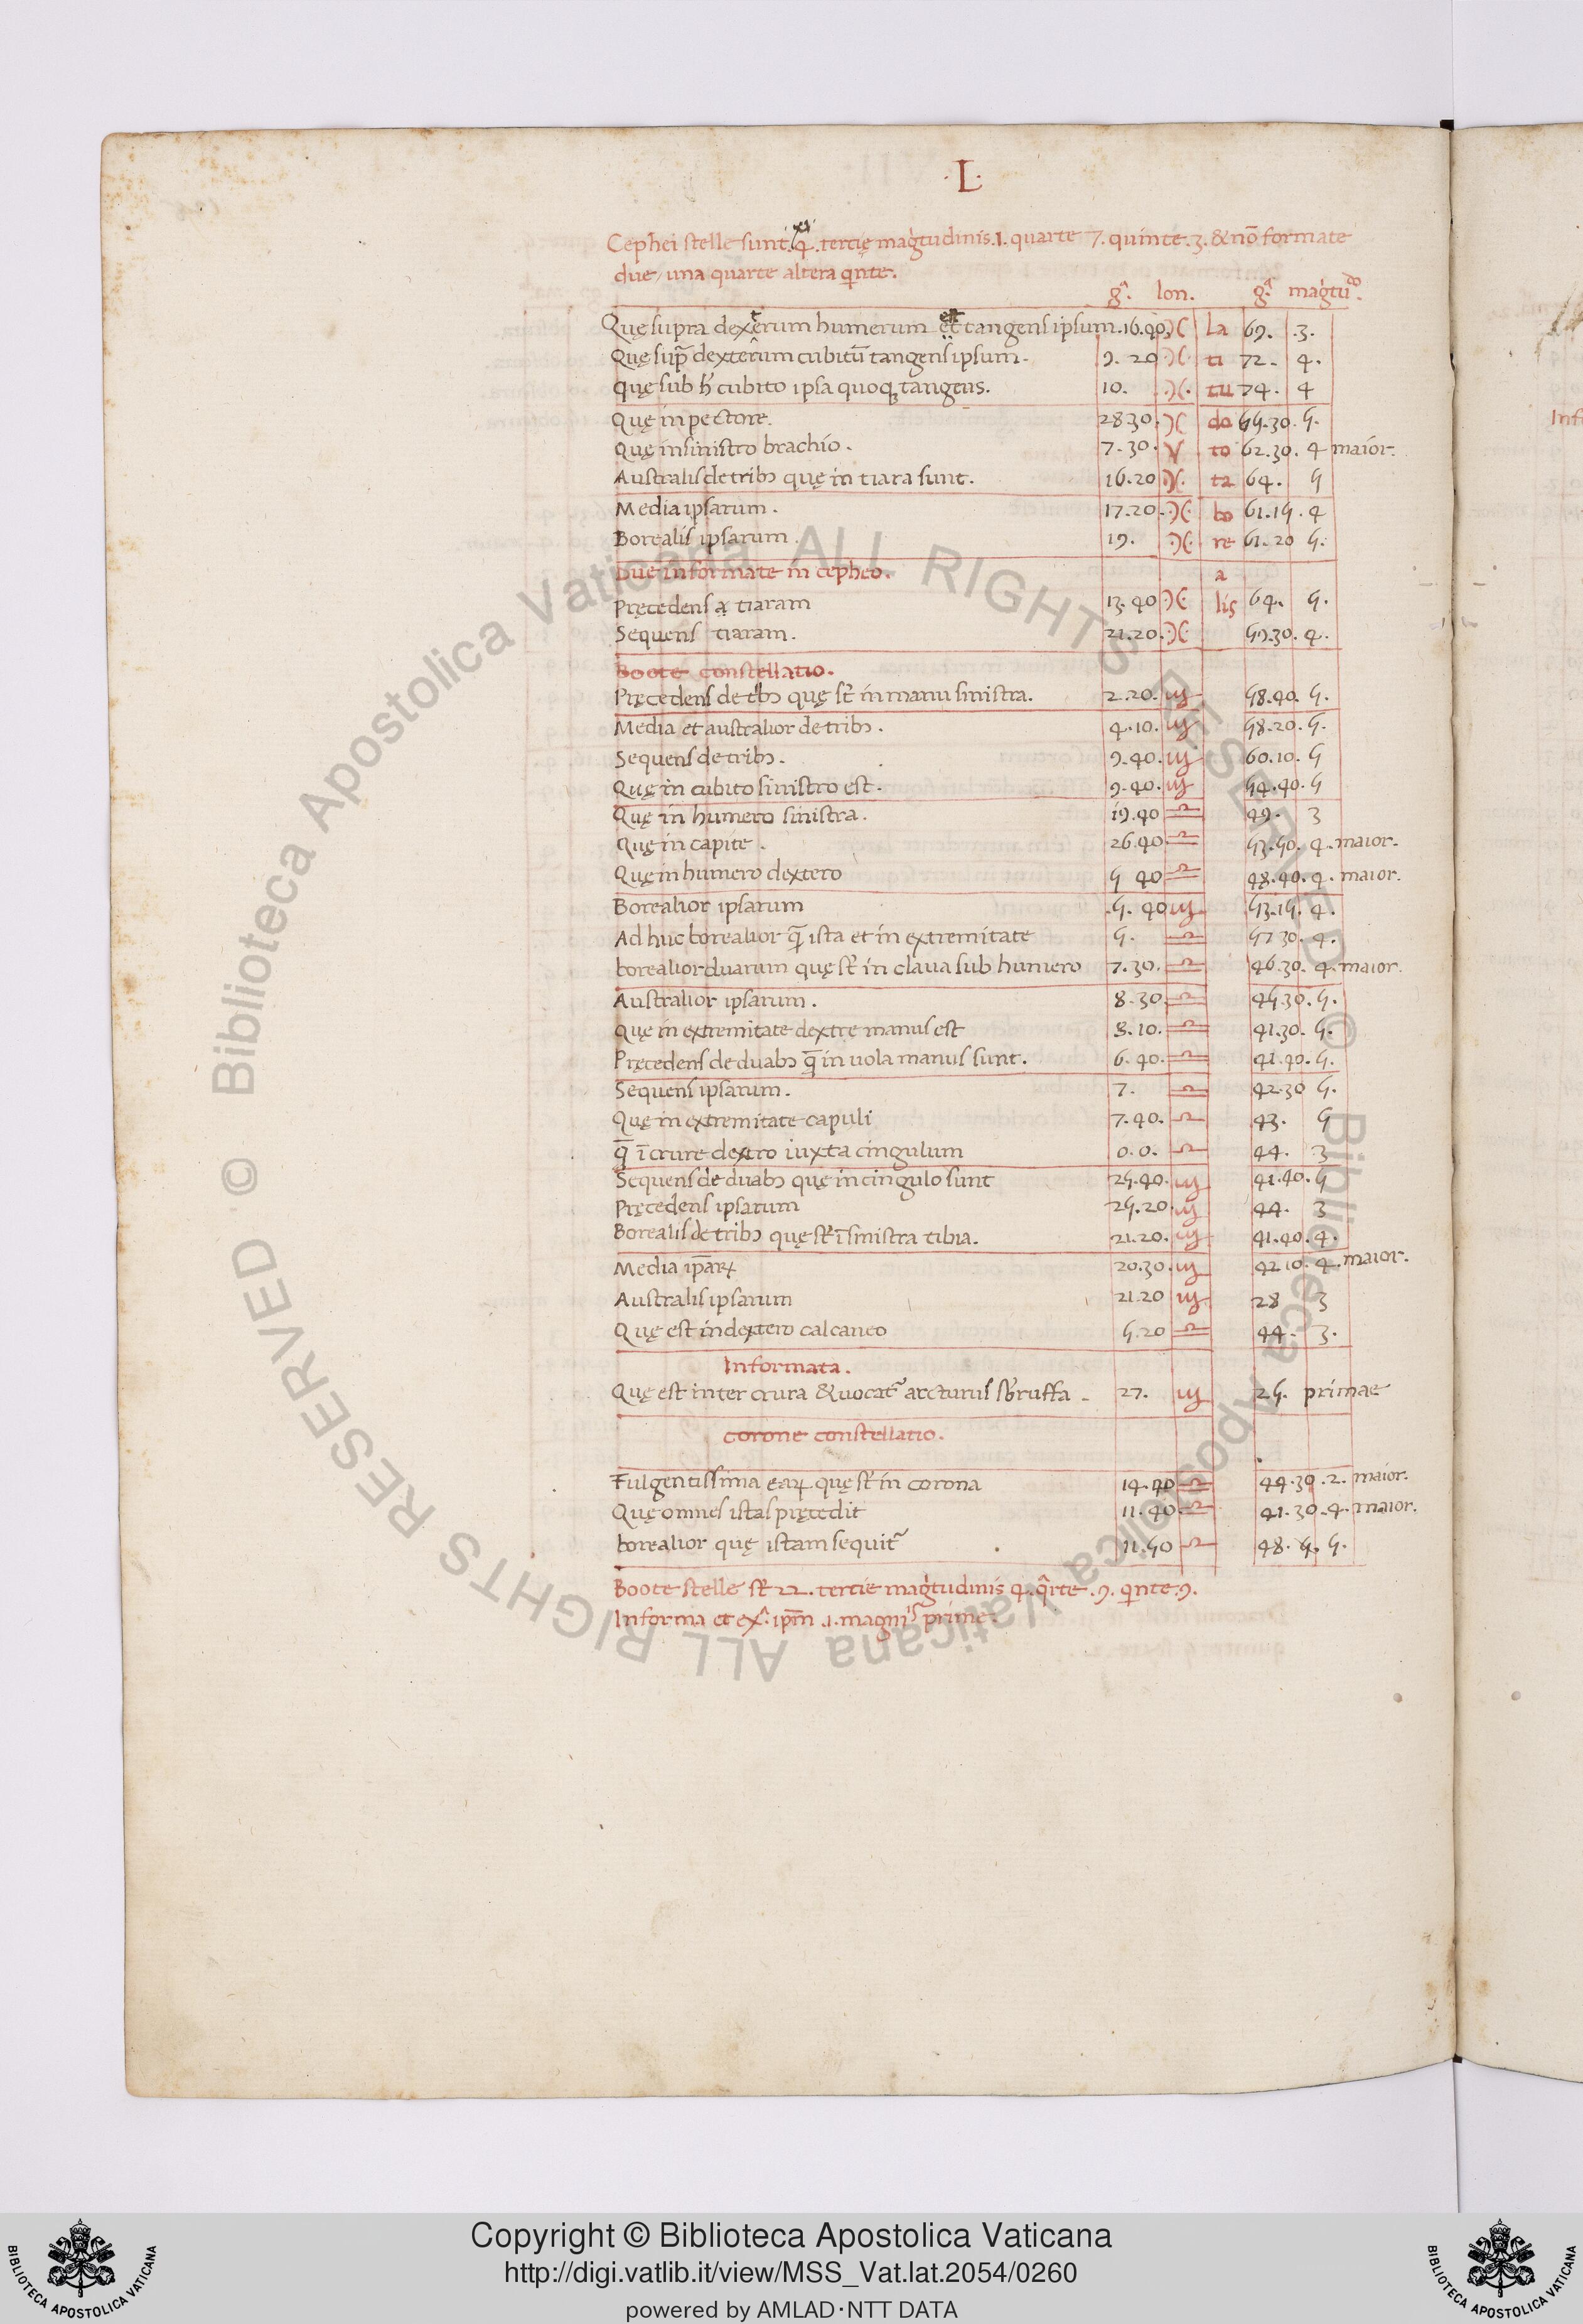 .L.
Cephei stelle sunt xi. tertię mag̃tudinis .1. quarte 7. quinte .3. & nō formate
due / una quarte altera q̃nte.
gᵃ. lon. gᵃ. mag̃tudo.
Quę supra dexterum humerum est tangens ipsum. 16.40 ♓ La 69. .3.
Quę sup̃ dexterum cubitū tangens ipsum. 9. 20 ♓ ti 72. 4.
quę sub h̃ cubito ipsa quoq; tangens. 10. ♓ tu 74. 4
Quę in pectore. 28.30. ♓ do 65.30. 5.
Quę in sinistro brachio. 7.30. ♈ to 62.30. 4 maior.
Australis de tribꝫ quę in tiara sunt. 16.20 ♓ ta 64. 5
Media ipsarum. 17.20. ♓ bo 61.15. 4
Borealis ipsarum. 19. ♓ re 61.20 5.
Due informate in cepheo. a
Pręcedens tiaram 13.40 ♓ lis 64. 5.
Sequens tiaram. 21.20. ♓ 59.30. 4.
Boote constellatio.
Pręcedens de tribꝫ quę st̃ in manu sinistra. 2.20. ♍ 58.40. 5.
Media et australior de tribꝫ. 4.10. ♍ 58.20. 5.
Sequens de tribꝫ. 9.40. ♍ 60.10. 5
Quę in cubito sinistro est. 9.40. ♍ 54.40. 5
Quę in humero sinistra. 19.40 ♎ 49. 3
Quę in capite. 26.40. ♎ 53.50. 4. maior.
Quę in humero dextero 5 40 ♎ 48.40. 4. maior.
Borealior ipsarum .5. 40 ♍ 53.15. 4.
Ad huc borealior q̃ ista et in extremitate 5. ♎ 57 30. 4.
borealior duarum quę st̃ in claua sub humero 7.30. ♎ 46.30. 4. maior.
Australior ipsarum. 8.30. ♎ 45.30. 5.
Quę in extremitate dextre manus est 8.10. ♎ 41.30. 5.
Pręcedens de duabꝫ q̃ in uola manus sunt. 6.40. ♎ 41.40. 5.
Sequens ipsarum. 7. ♎ 42.30 5.
Quę in extremitate capuli 7.40. ♎ 43. 5
q̃ ī crure dextro iuxta cingulum 0.0. ♎ 44. 3
Sequens de duabꝫ quę in cingulo sunt 25.40. ♍ 41.40. 5
Pręcedens ipsarum 25.20. ♍ 44. 3
Borealis de tribꝫ quę st̃ ī sinistra tibia. 21.20. ♍ 41.40. 4.
Media ip̄aꝝ 20.30. ♍ 42 10. 4. maior.
Australis ipsarum 21.20 ♍ 28 3
Quę est in dextero calcaneo 5.20 ♎ 44. 3.
Informata.
Quę est inter crura & uocat̃ arcturus sb̃ruffa. 27. ♍ 25. primae
corone constellatio.
Fulgentissima eaꝝ quę st̃ in corona 14.40 ♎ 44.30 .2. maior.
Quę omnes istas pręcedit 11.40. ♎ 41.30. 4. maior.
borealior quę istam sequit̃ 11.50 ♎ 48. 5.
Boote stelle st̃ 22. tertie mag̃tudinis 4. q̃rte .9. q̃nte .9.
Informa et exᵃ. ip̄m .1. magnis prime.
Copyright © Biblioteca Apostolica Vaticana
http://digi.vatlib.it/view/MSS_Vat.lat.2054/0260
powered by AMLAD·NTT DATA
BIBLIOTECA APOSTOLICA VATICANA
BIBLIOTECA APOSTOLICA VATICANA
© Biblioteca Apostolica Vaticana ALL RIGHTS RESERVED
© Biblioteca Apostolica Vaticana ALL RIGHTS RESERVED